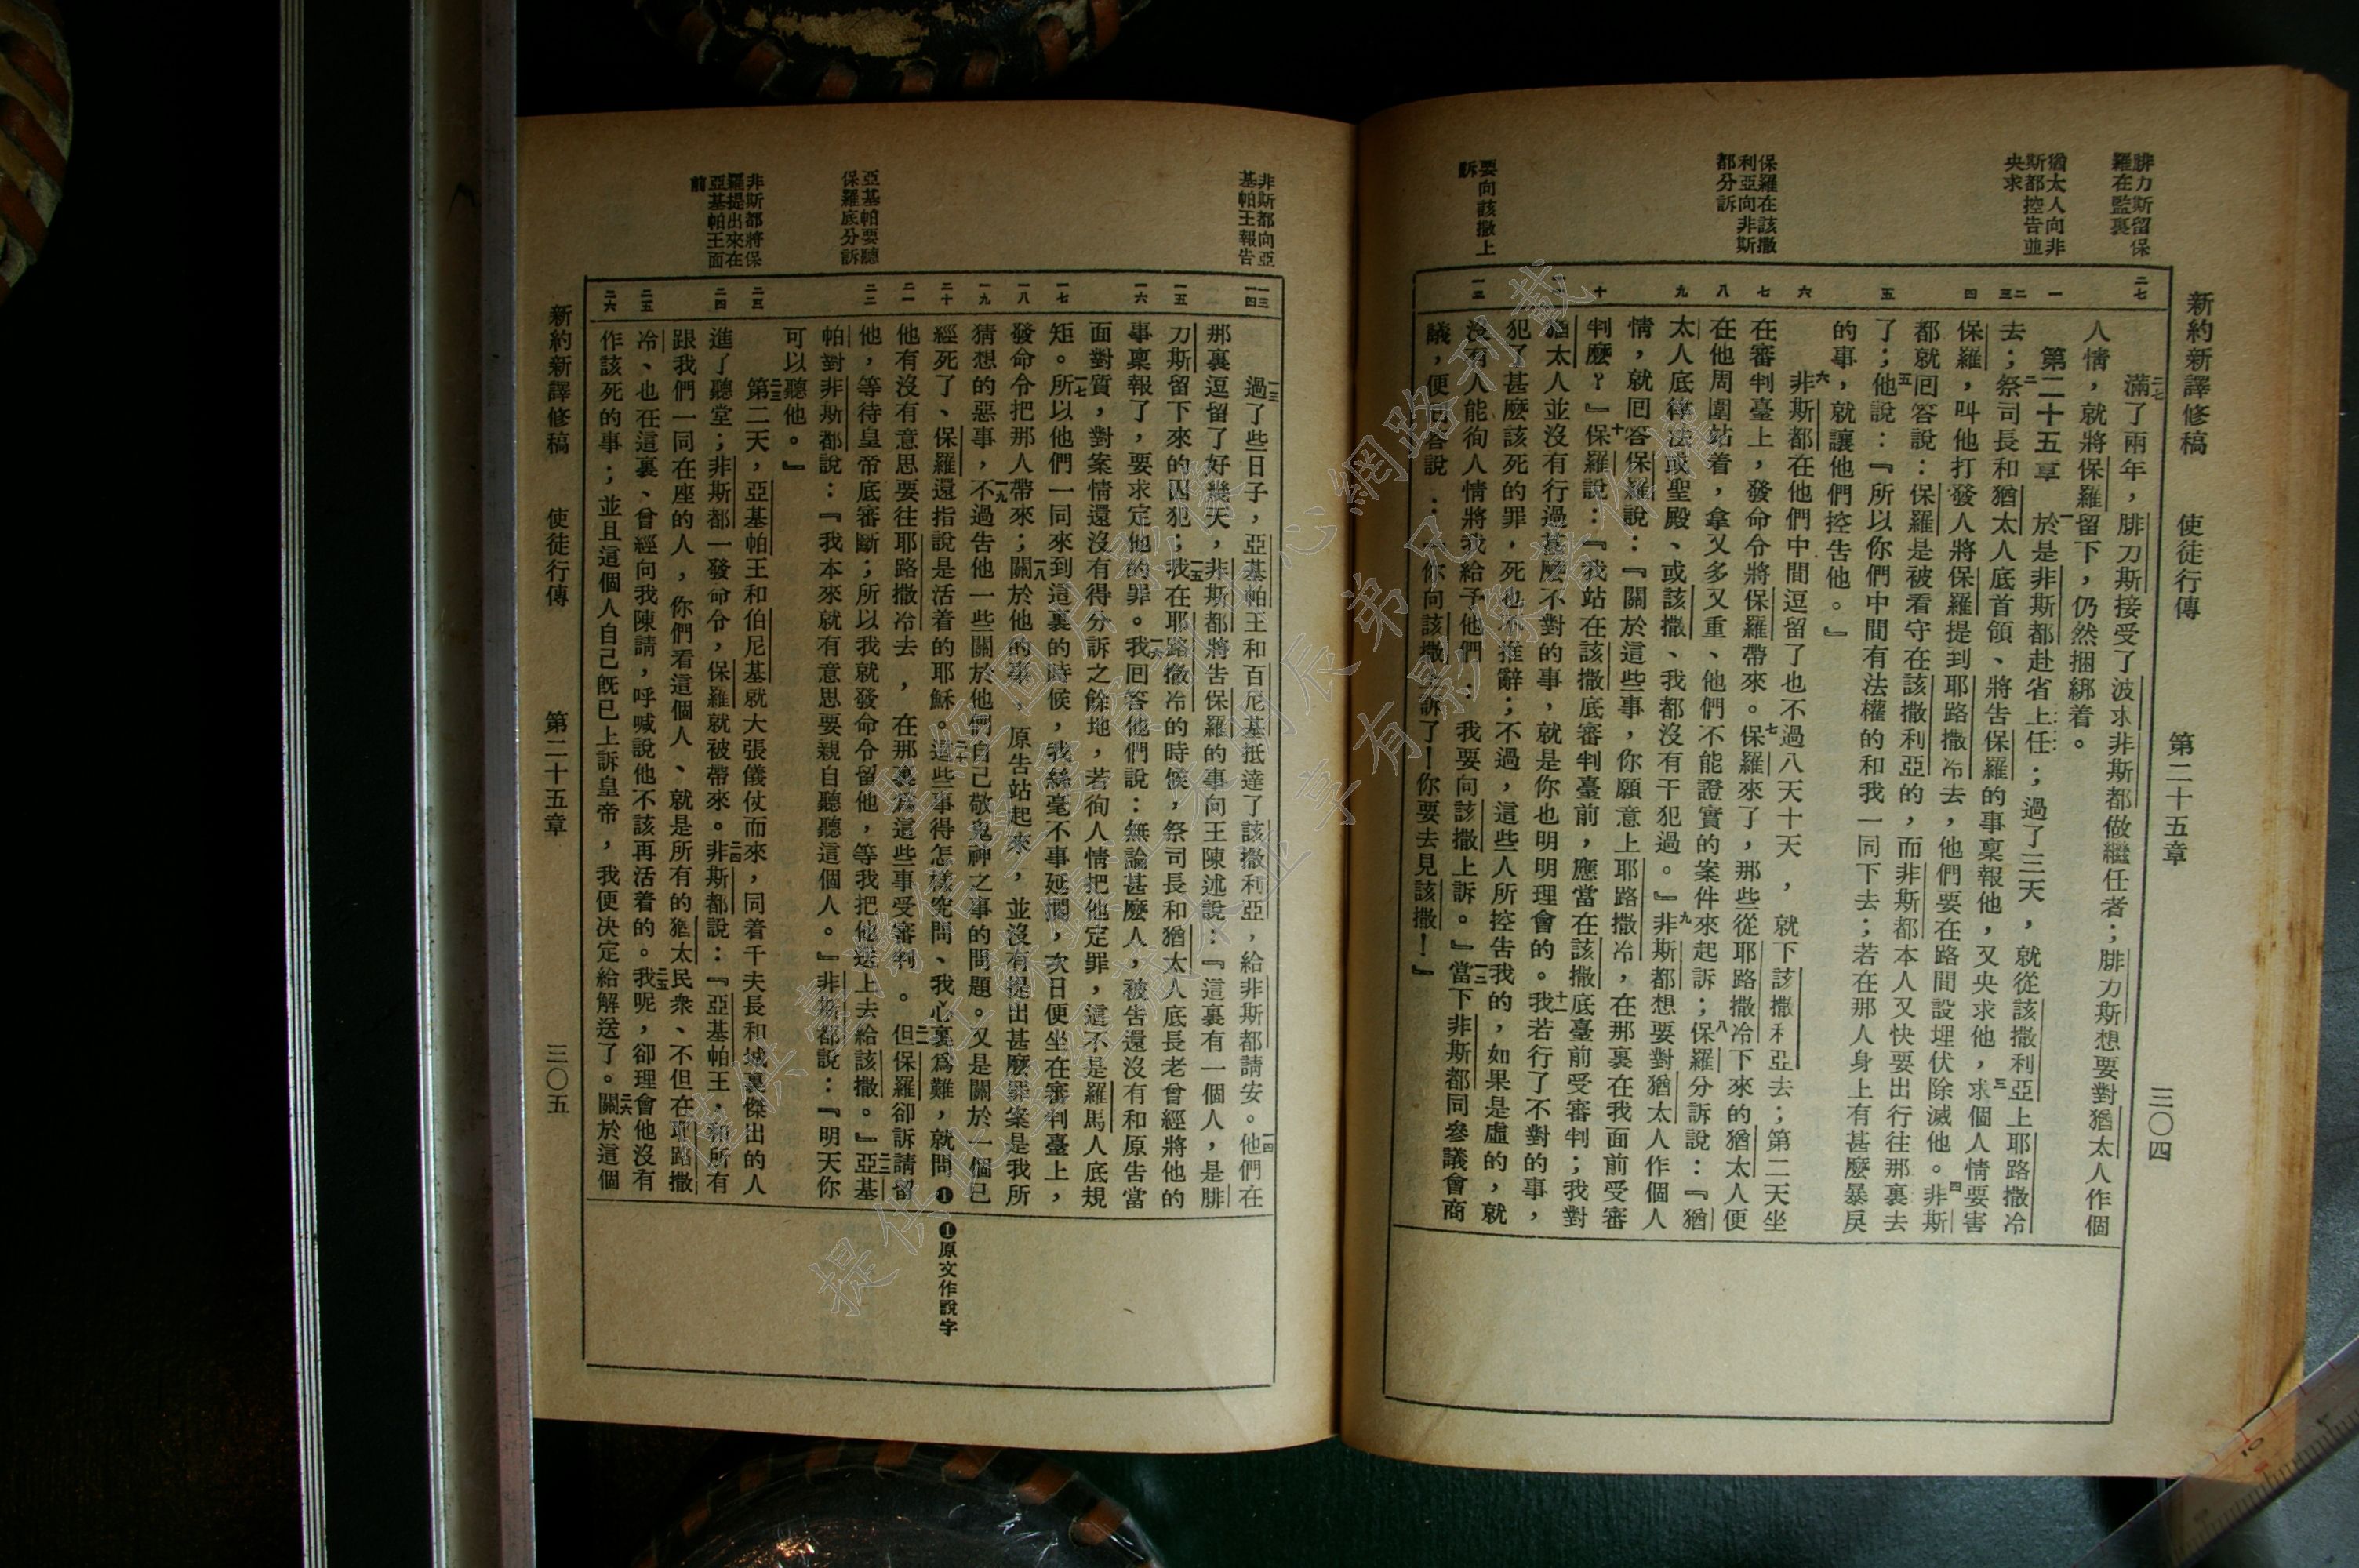 新約新譯修稿　使徒行傳　第二十五章　三〇四
腓力斯留保
羅在監裏
猶太人向非
斯都控告並
央求
保羅在該撒
利亞向非斯
都分訴
要向該撒上
訴
二七
一
二
三
四
五
六
七
八
九
十
十一
一二
二七滿了兩年，腓力斯接受了波求非斯都做繼任者；腓力斯想要對猶太人作個
人情，就將保羅留下，仍然捆綁着。
第二十五章　一於是非斯都赴省上任；過了三天，就從該撒利亞上耶路撒冷
去；二祭司長和猶太人底首領、將告保羅的事稟報他，又央求他，三求個人情要害
保羅，叫他打發人將保羅提到耶路撒冷去，他們要在路間設埋伏除滅他。四非斯
都就囘答說：保羅是被看守在該撒利亞的，而非斯都本人又快要出行往那裏去
了；五他說：『所以你們中間有法權的和我一同下去；若在那人身上有甚麼暴戾
的事，就讓他們控告他。』
六非斯都在他們中間逗留了也不過八天十天，就下該撒利亞去；第二天坐
在審判臺上，發命令將保羅帶來。七保羅來了，那些從耶路撒冷下來的猶太人便
在他周圍站着，拿又多又重、他們不能證實的案件來起訴；八保羅分訴說：『猶
太人底律法或聖殿、或該撒、我都沒有干犯過。』九非斯都想要對猶太人作個人
情，就囘答保羅說：『關於這些事，你願意上耶路撒冷，在那裏在我面前受審
判麼？』十保羅說：『我站在該撒底審判臺前，應當在該撒底臺前受審判；我對
猶太人並沒有行過甚麼不對的事，就是你也明明理會的。十一我若行了不對的事，
犯了甚麼該死的罪，死也不推辭；不過，這些人所控告我的，如果是虛的，就
沒有人能徇人情將我給予他們：我要向該撒上訴。』一二當下非斯都同參議會商
議，便囘答說：『你向該撒上訴了！你要去見該撒！』
非斯都向亞
基帕王報告
亞基帕要聽
保羅底分訴
非斯都將保
羅提出來在
亞基帕王面
前
一三
一四
一五
一六
一七
一八
一九
二十
二一
二二
二三
二四
二五
二六
一三過了些日子，亞基帕王和百尼基抵達了該撒利亞，給非斯都請安。一四他們在
那裏逗留了好幾天，非斯都將告保羅的事向王陳述說：『這裏有一個人，是腓
力斯留下來的囚犯；一五我在耶路撒冷的時候，祭司長和猶太人底長老曾經將他的
事稟報了，要求定他的罪。一六我囘答他們說：無論甚麼人，被告還沒有和原告當
面對質，對案情還沒有得分訴之餘地，若徇人情把他定罪，這不是羅馬人底規
矩。一七所以他們一同來到這裏的時候，我絲毫不事延擱，次日便坐在審判臺上，
發命令把那人帶來；一八關於他的事，原告站起來，並沒有提出甚麼罪案是我所
猜想的惡事，一九不過告他一些關於他們自己敬鬼神之事的問題。又是關於一個已
經死了、保羅還指說是活着的耶穌。二十這些事得怎樣究問、我心裏爲難，就問❶
他有沒有意思要往耶路撒冷去，在那裏爲這些事受審判。二一但保羅卻訴請留
他，等待皇帝底審斷；所以我就發命令留他，等我把他送上去給該撒。』二二亞基
帕對非斯都說：『我本來就有意思要親自聽聽這個人。』非斯都說：『明天你
可以聽他。』
二三第二天，亞基帕王和伯尼基就大張儀仗而來，同着千夫長和城裏傑出的人
進了聽堂；非斯都一發命令，保羅就被帶來。二四非斯都說：『亞基帕王、和所有
跟我們一同在座的人，你們看這個人、就是所有的猶太民衆、不但在耶路撒
冷、也在這裏、曾經向我陳請，呼喊說他不該再活着的。二五我呢，卻理會他沒有
作該死的事；並且這個人自己旣已上訴皇帝，我便决定給解送了。二六關於這個
❶原文作說字
新約新譯修稿　使徒行傳　第二十五章　三〇五